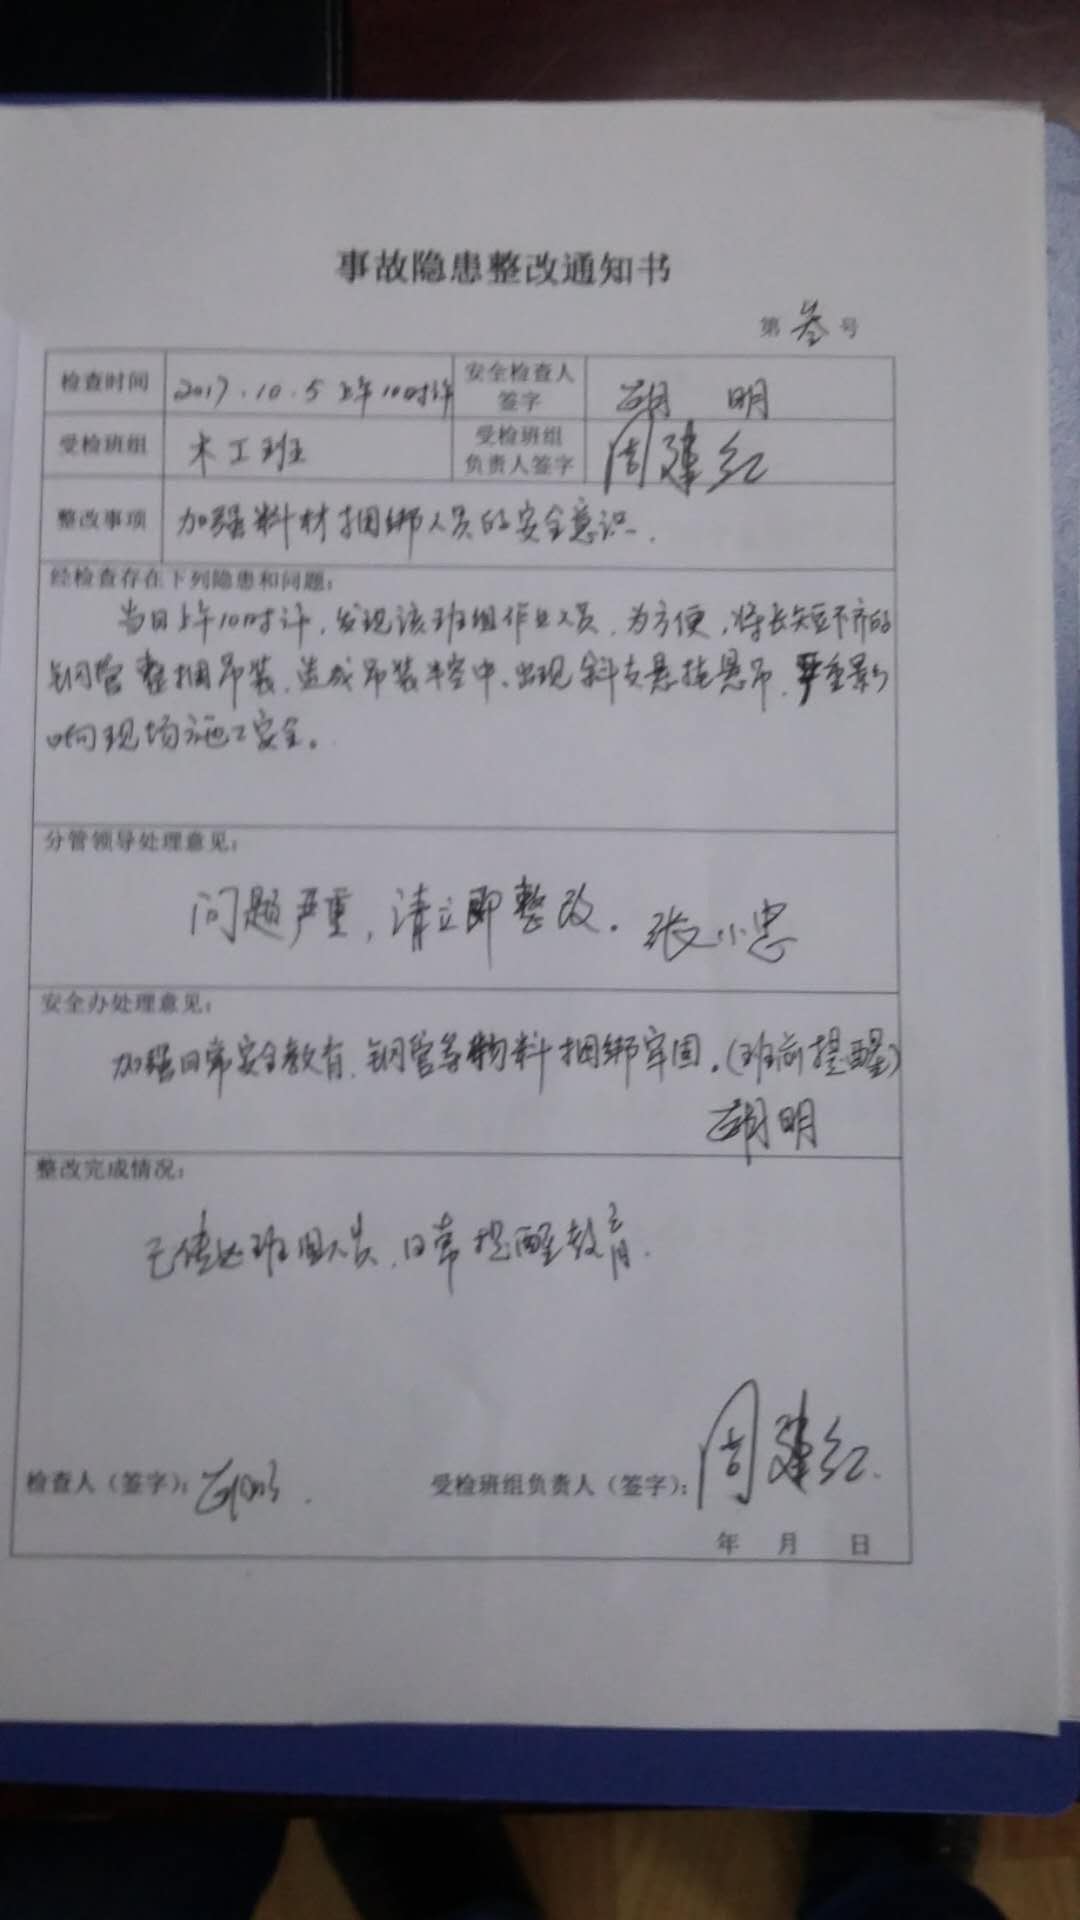 事故隐患整改通知书
第 叁 号
检查时间 2017.10.5 上午10时许 安全检查人签字 胡 明
受检班组 木工班 受检班组负责人签字 周建红
整改事项 加强料材捆绑人员的安全意识.
经检查存在下列隐患和问题:
当日上午10时许,发现该班组作业人员,为方便,将长短不齐的
钢管整捆吊装,造成吊装半空中,出现斜支悬挂悬吊,严重影
响现场施工安全。
分管领导处理意见:
问题严重,请立即整改. 张小忠
安全办处理意见:
加强日常安全教育,钢管等物料捆绑牢固.(班前提醒)
胡明
整改完成情况:
已传达班组人员,日常提醒教育.
检查人(签字): 胡明. 受检班组负责人(签字): 周建红.
年 月 日